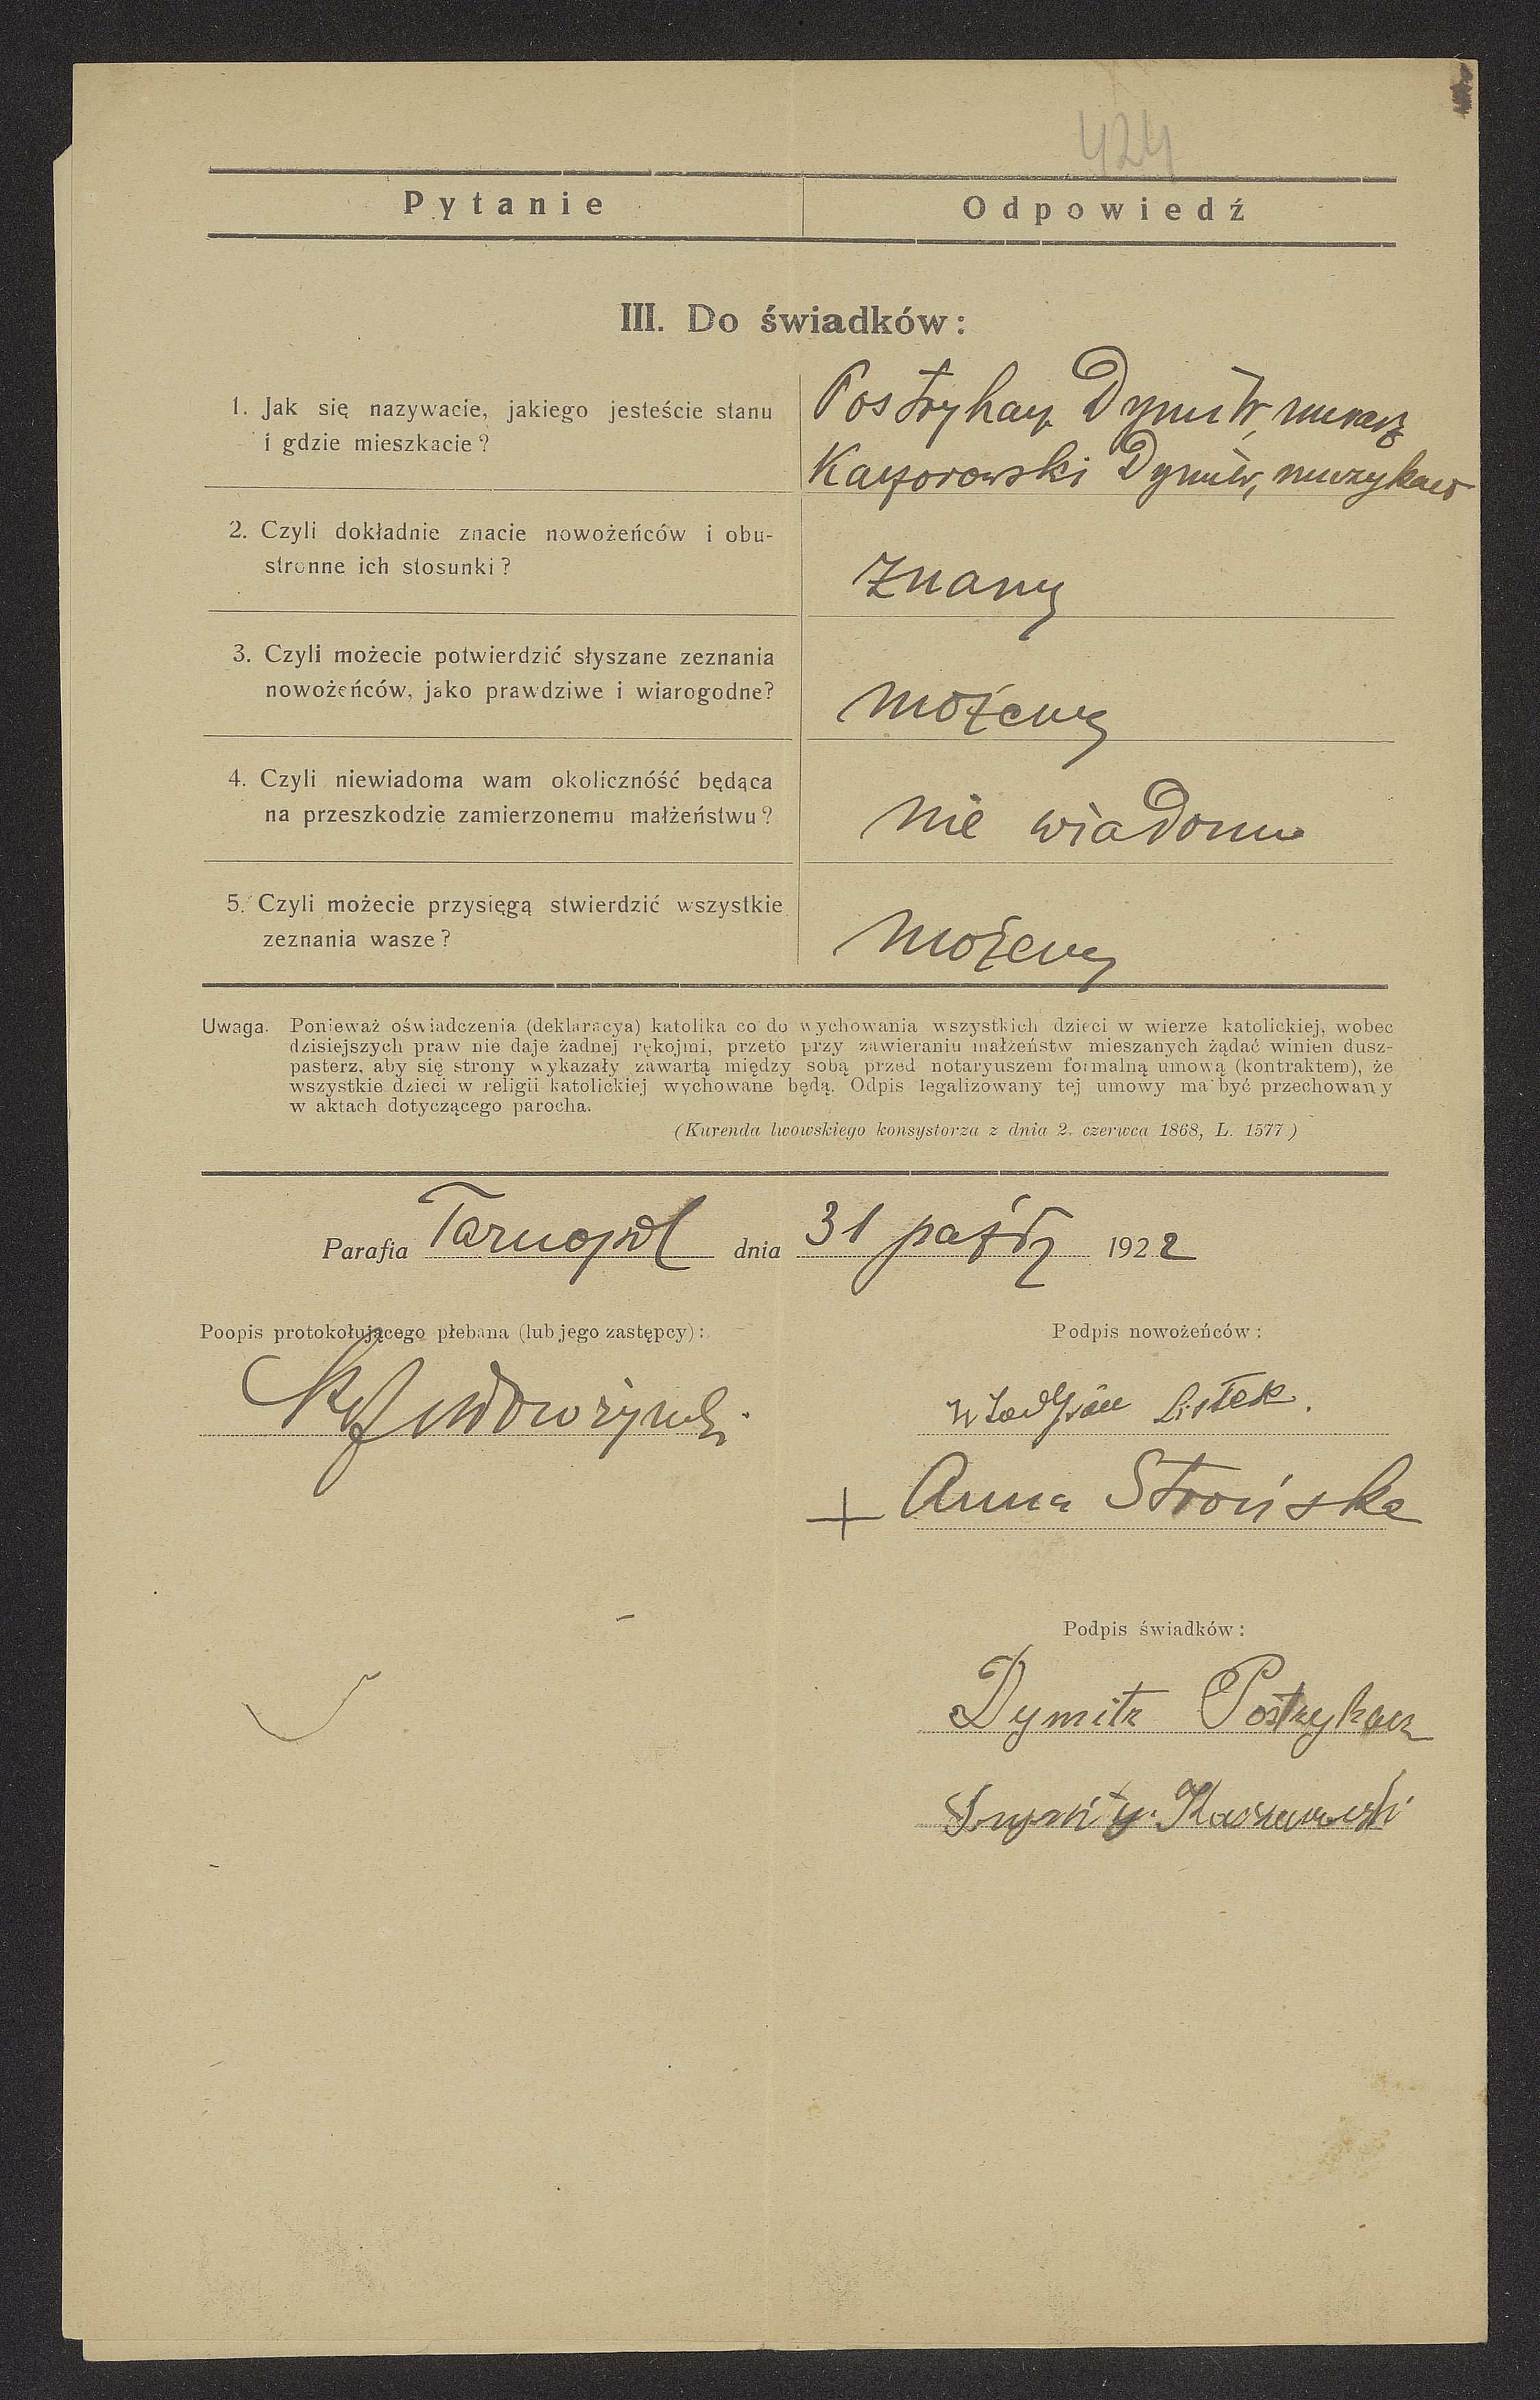 424
Pytanie
Odpowiedź
III. Do świadków:
1. Jak się nazywacie, jakiego jesteście stanu
i gdzie mieszkacie?
Postrykacz Dymitr, murarz
Kaczorowski Dymitr, muzykant
2. Czyli dokładnie znacie nowożeńców i obu-
stronne ich stosunki?
znamy
3. Czyli możecie potwierdzić słyszane zeznania
nowożeńców, jako prawdziwe i wiarogodne?
możemy
4. Czyli niewiadoma wam okoliczność będąca
na przeszkodzie zamierzonemu małżeństwu?
nie wiadomo
5. Czyli możecie przysięgą stwierdzić wszystkie
zeznania wasze?
możemy
Uwaga. Ponieważ oświadczenia (deklaracya) katolika co do wychowania wszystkich dzieci w wierze katolickiej, wobec
dzisiejszych praw nie daje żadnej rękojmi, przeto przy zawieraniu małżeństw mieszanych żądać winien dusz-
pasterz, aby się strony wykazały zawartą między sobą przed notaryuszem formalną umową (kontraktem), że
wszystkie dzieci w religii katolickiej wychowane będą. Odpis legalizowany tej umowy ma być przechowany
w aktach dotyczącego parocha.
(Kurenda lwowskiego konsystorza z dnia 2. czerwca 1868, L. 1577)
Parafia Tarnopol dnia 31 paźdz 1922
Poopis protokołującego plebana (lub jego zastępcy):
Podpis nowożeńców:
Listek.
+ Anna Strońska
Podpis świadków:
Dymitr Postrykacz